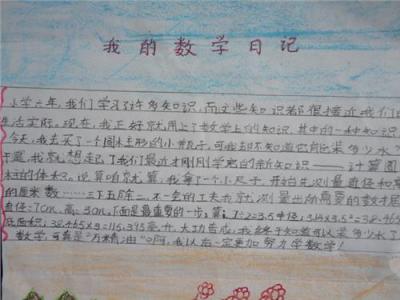 我的数学日记
小学六年，我们学习了许多知识，而这些知识都很接近我们的
生活实际。现在，我正好就用上了数学上的知识，其中的一种知识
今天，我去买了一个圆柱形的小瓶子，可我却不知道它能装多少水？
于是，我就想起了我们最近才刚刚学完的新知识——计算圆
柱的体积。说算咱就算，我拿了一个小尺子，开始先测量直径和高
的厘米数……三下五除二，不一会的工夫我就测量出所需要的数据
直径：7cm，高：3cm，下面是最重要的一步：算。7÷2=3.5半径；3.14×3.5²=38.465
底面积；38.465×3=115.395毫升，大功告成，我终于知道可以装多少水了
数学，可真是"万精油"啊，我以后一定更加努力学数学！